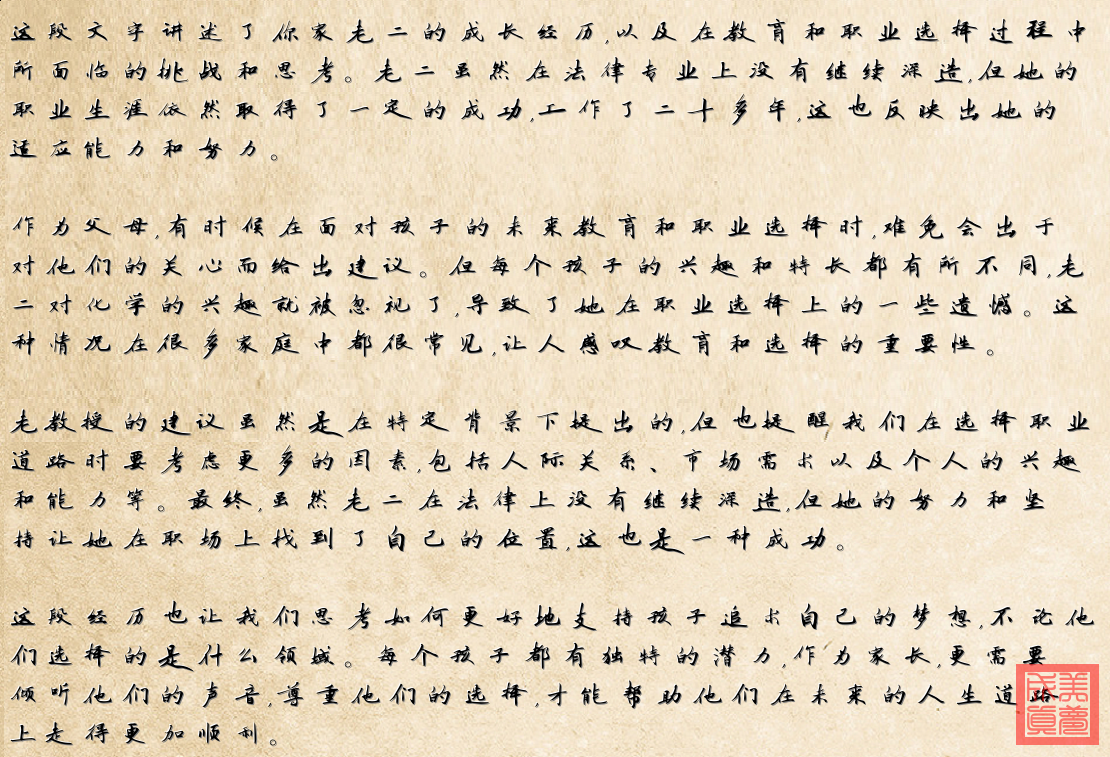 这段文字讲述了你家老二的成长经历,以及在教育和职业选择过程中
所面临的挑战和思考。老二虽然在法律专业上没有继续深造,但她的
职业生涯依然取得了一定的成功,工作了二十多年,这也反映出她的
适应能力和努力。
作为父母,有时候在面对孩子的未来教育和职业选择时,难免会出于
对他们的关心而给出建议。但每个孩子的兴趣和特长都有所不同,老
二对化学的兴趣就被忽视了,导致了她在职业选择上的一些遗憾。这
种情况在很多家庭中都很常见,让人感叹教育和选择的重要性。
老教授的建议虽然是在特定背景下提出的,但也提醒我们在选择职业
道路时要考虑更多的因素,包括人际关系、市场需求以及个人的兴趣
和能力等。最终,虽然老二在法律上没有继续深造,但她的努力和坚
持让她在职场上找到了自己的位置,这也是一种成功。
这段经历也让我们思考如何更好地支持孩子追求自己的梦想,不论他
们选择的是什么领域。每个孩子都有独特的潜力,作为家长,更需要
倾听他们的声音,尊重他们的选择,才能帮助他们在未来的人生道路
上走得更加顺利。
美梦成真